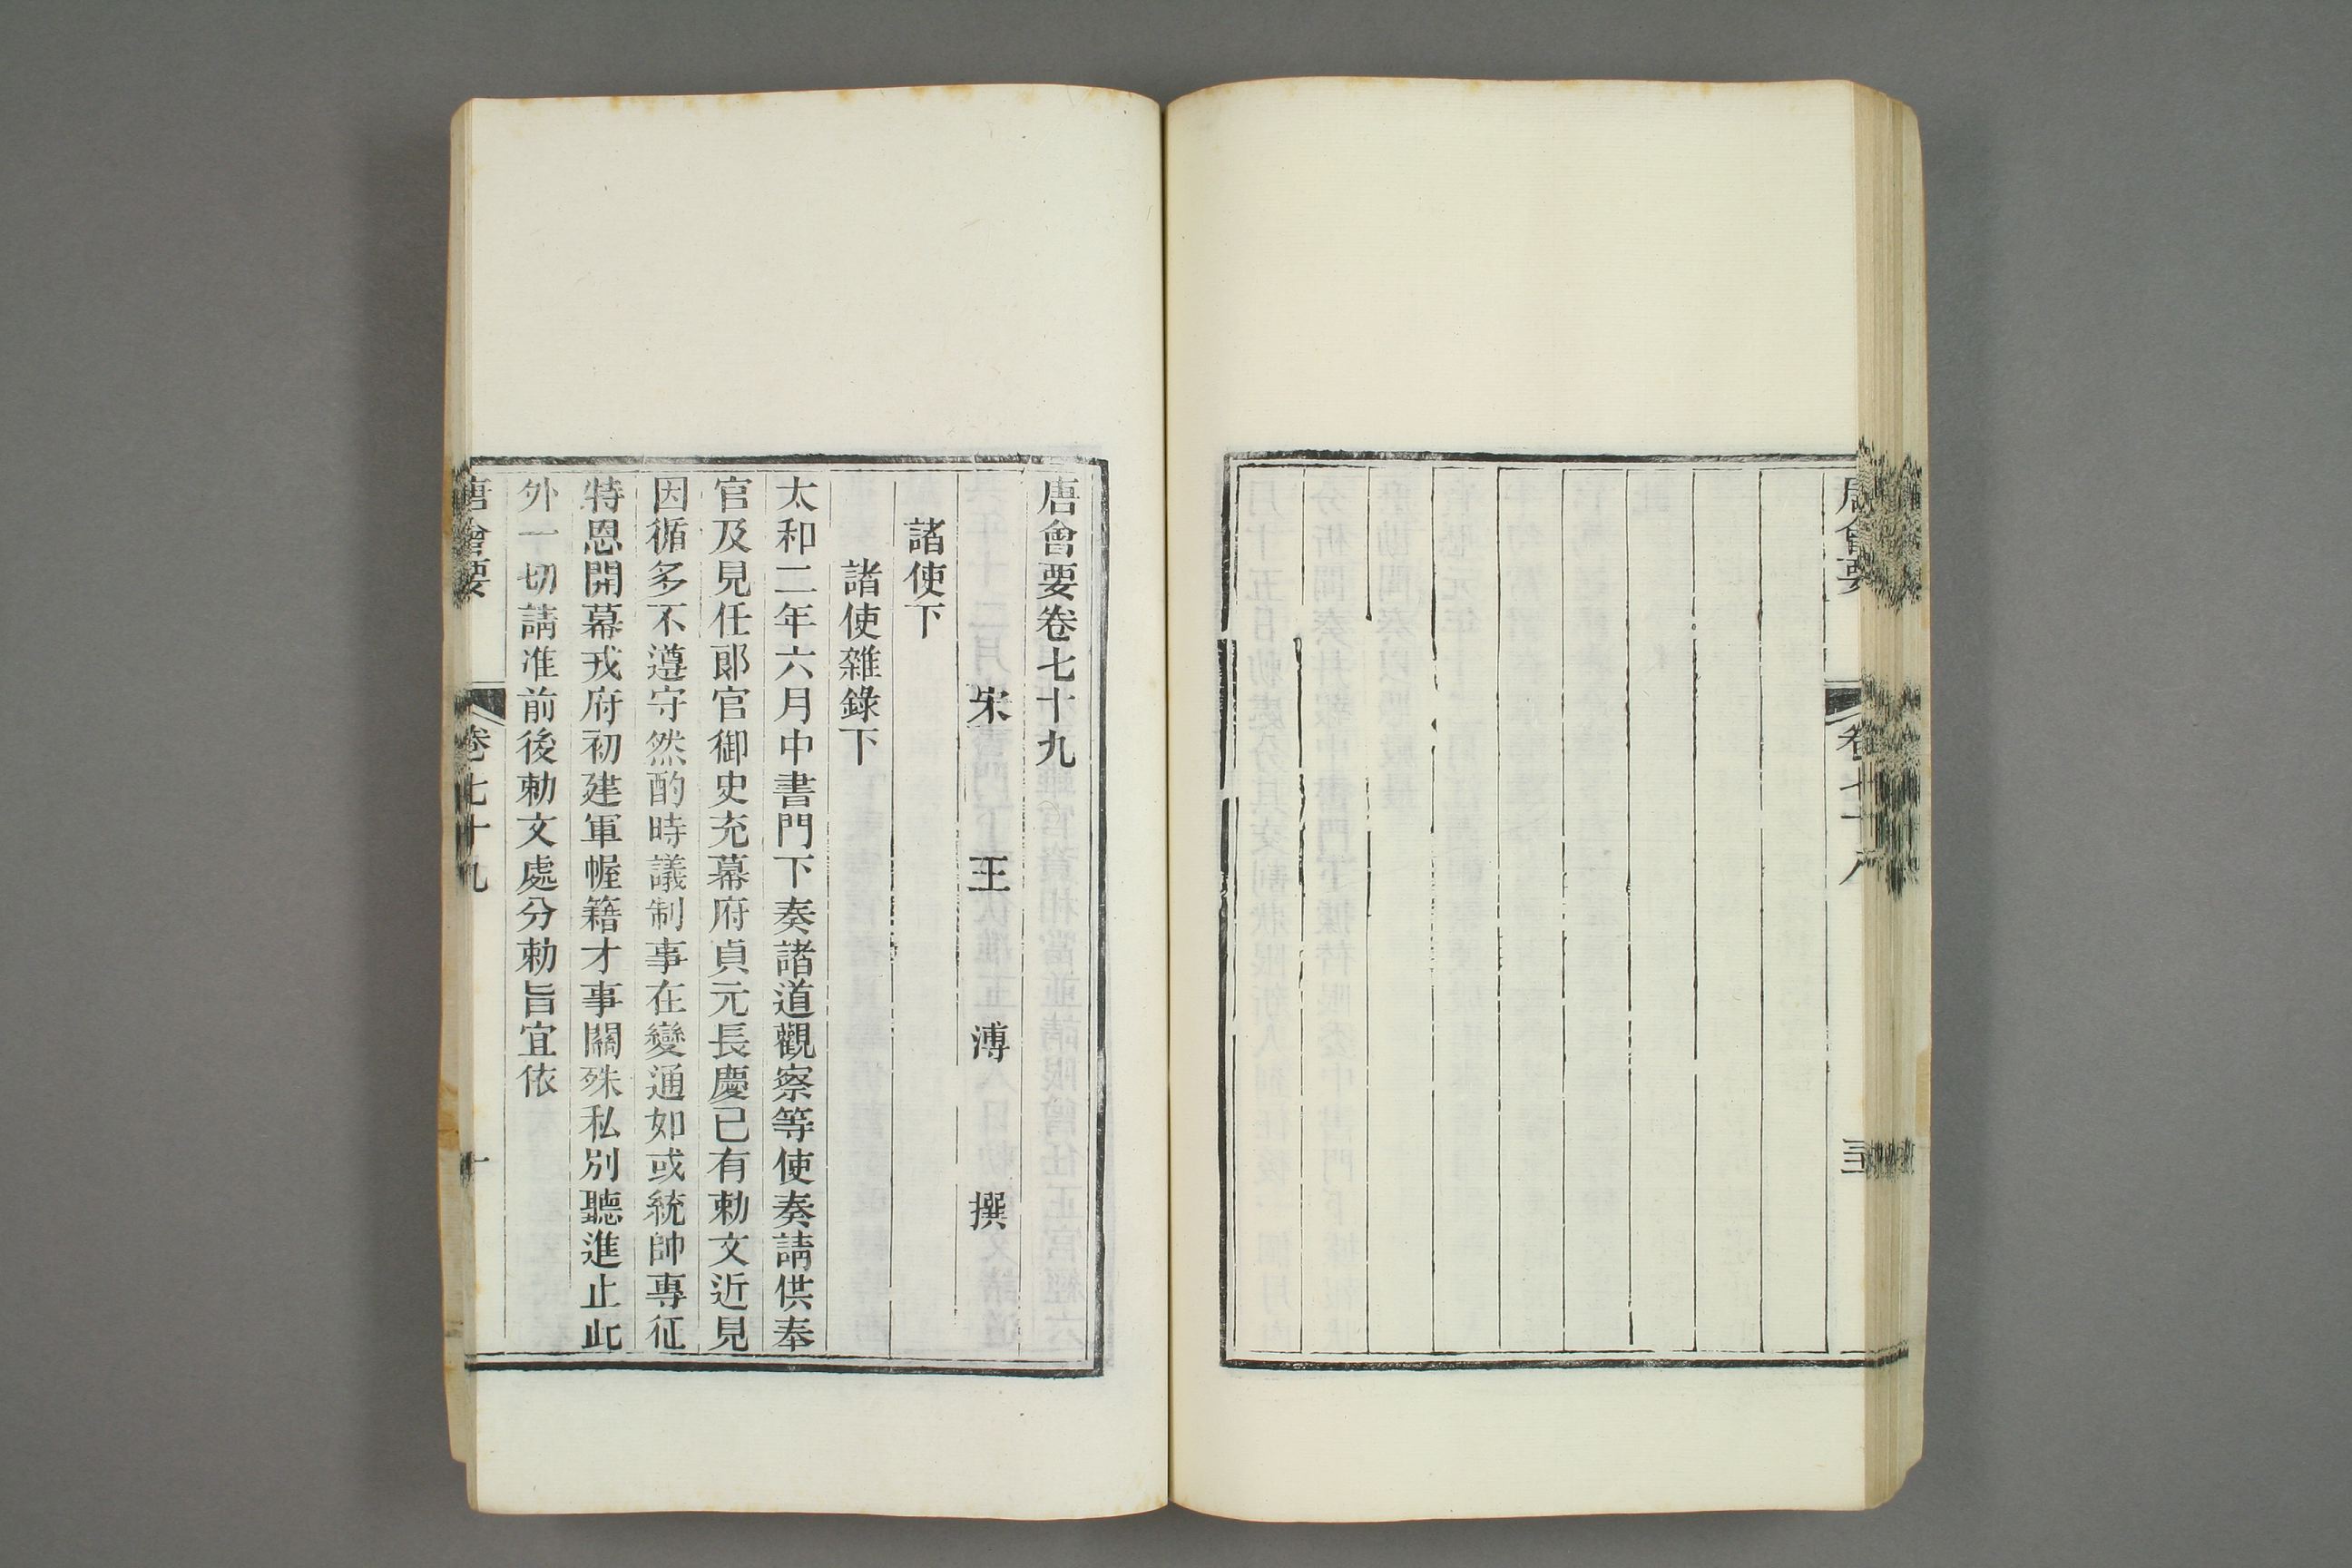 唐會要
卷七十八
唐會要卷七十九
宋 王 溥 撰
諸使下
諸使雜錄下
太和二年六月中書門下奏諸道觀察等使奏請供奉
官及見任郎官御史充幕府貞元長慶已有勅文近見
因循多不遵守然酌時議制事在變通如或統帥專征
特恩開幕戎府初建軍幄籍才事關殊私別聽進止此
外一切請准前後勅文處分勅旨宜依
唐會要
卷七十九
一